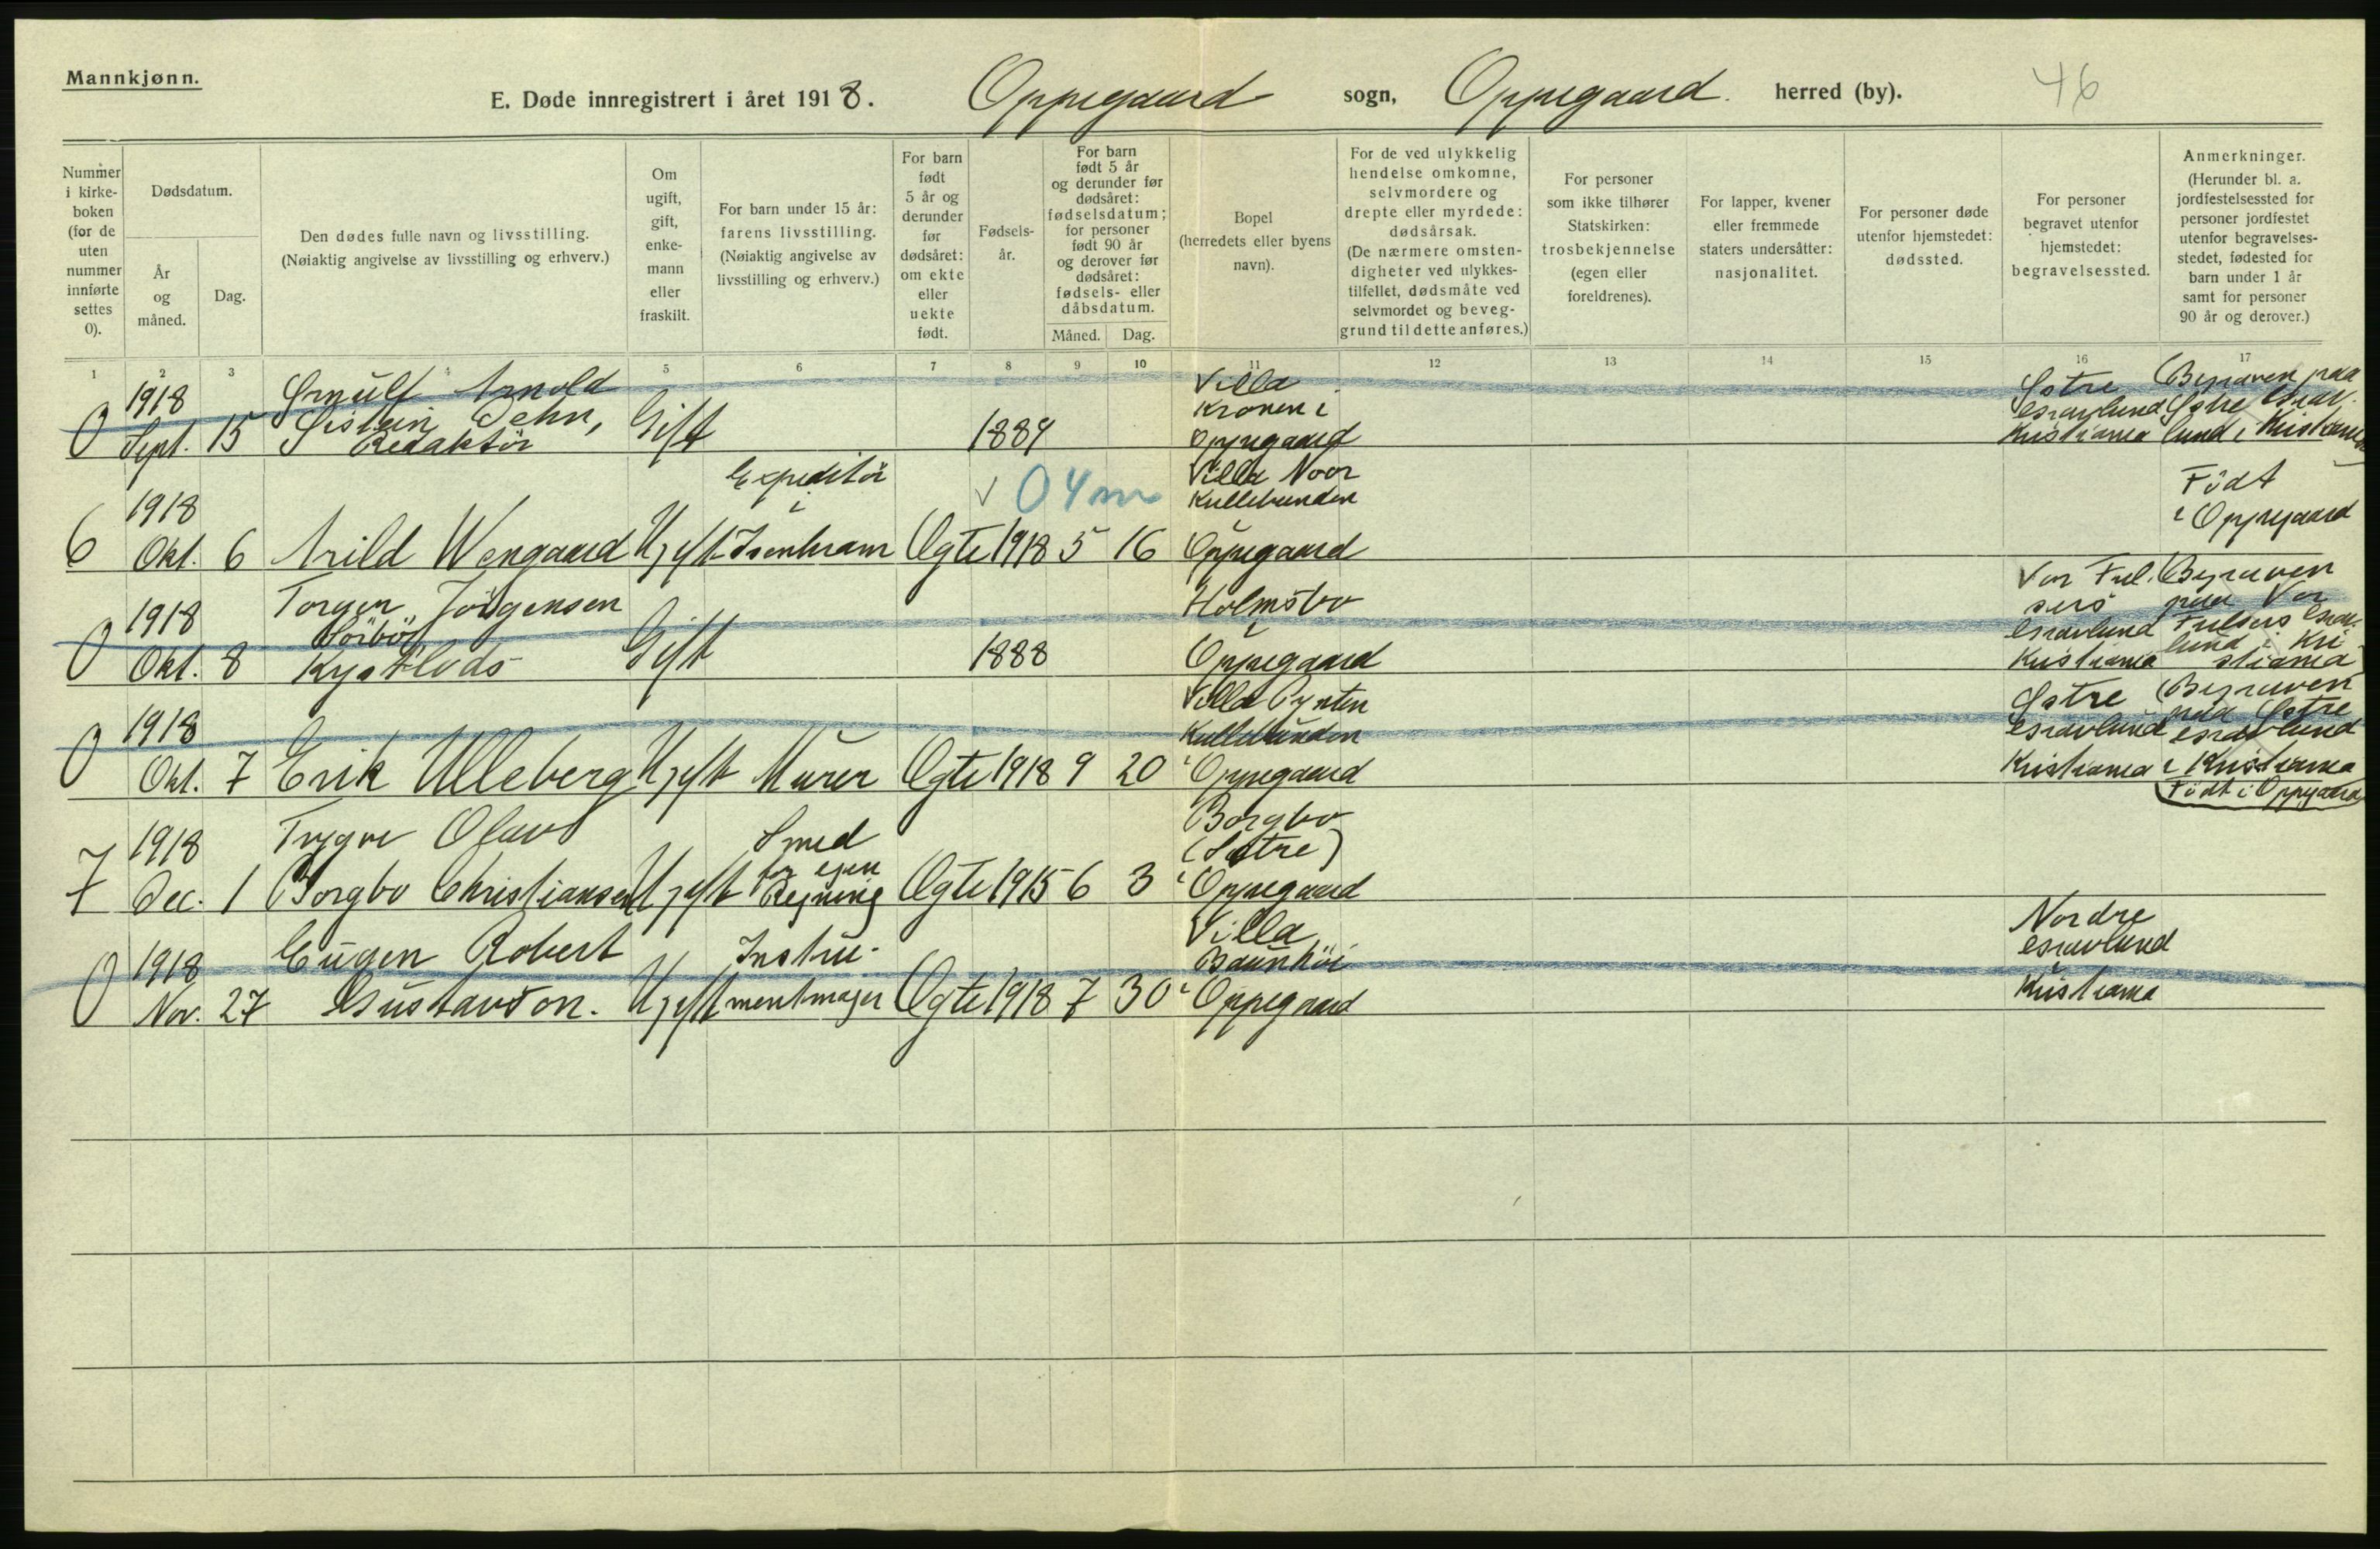 Mannkjønn.
E. Døde innregistrert i året 1918. Oppegaard sogn, Oppegaard. herred (by). 46
Nummer
i kirke-
boken
(for de
uten
nummer
innførte
settes
0).
Dødsdatum.
År
og
måned.
Dag.
Den dødes fulle navn og livsstilling.
(Nøiaktig angivelse av livsstilling og erhverv.)
Om
ugift,
gift,
enke-
mann
eller
fraskilt.
For barn under 15 år:
farens livsstilling.
(Nøiaktig angivelse av
livsstilling og erhverv.)
For barn
født
5 år og
derunder
før
dødsåret:
om ekte
eller
uekte
født.
Fødsels-
år.
For barn
født 5 år
og derunder før
dødsåret:
fødselsdatum;
for personer
født 90 år
og derover før
dødsåret:
fødsels- eller
dåbsdatum.
Måned. Dag.
Bopel
(herredets eller byens
navn).
For de ved ulykkelig
hendelse omkomne,
selvmordere og
drepte eller myrdede:
dødsårsak.
(De nærmere omsten-
digheter ved ulykkes-
tilfellet, dødsmåte ved
selvmordet og beveg-
grund til dette anføres.)
For personer
som ikke tilhører
Statskirken:
trosbekjennelse
(egen eller
foreldrenes).
For lapper, kvener
eller fremmede
staters undersåtter:
nasjonalitet.
For personer døde
utenfor hjemstedet:
dødssted.
For personer
begravet utenfor
hjemstedet:
begravelsessted.
Anmerkninger.
(Herunder bl. a.
jordfestelsessted for
personer jordfestet
utenfor begravelses-
stedet, fødested for
barn under 1 år
samt for personer
90 år og derover.)
1 2 3 4 5 6 7 8 9 10 11 12 13 14 15 16 17
0
1918
Sept. 15
Arnold
Dehn,
Redaktör
Gift
1889
Villa
Kronen i
Oppegaard
Östre
Gravlund
Kristiania
Begraven paa
Östre Grav-
lund i Kristiania
6
1918
Okt. 6
Arild Wengaard
Ugift
Expeditör
i
Isenkram
Ægte 1918 5 16
√ 0 4 m
Villa Noor
Kullebunden
i
Oppegaard
Födt
i Oppegaard
0
1918
Okt. 8
Torger Jörgensen
Sörbö
Kystlods
Gift
1888
Holmsbo
i
Oppegaard
Vor Frel.
sers
Gravlund
Kristiania
Begraven
paa Vor
Frelsers Grav-
lund i Kri
stiania
0
1918
Okt. 7
Erik Ulleberg
Ugift Murer Ægte 1918 9 20
Villa Pynten
Kullebunden
i Oppegaard
Östre
Gravlund
Kristiania
Begraven
paa Östre
Gravlund
i Kristiania
Födt i Oppegaard
7
1918
Dec. 1
Trygve Olav
Borgbo Christiansen
Ugift
Smed
for egen
Regning
Ægte 1915 6 3
Borgbo
(Sætre)
i Oppegaard
0
1918
Nov. 27
Eugen Robert
Gustavson.
Ugift
Instru-
mentmager
Ægte 1918 7 30
Villa
Baunhöi
i Oppegaard
Nordre
Gravlund
Kristiania